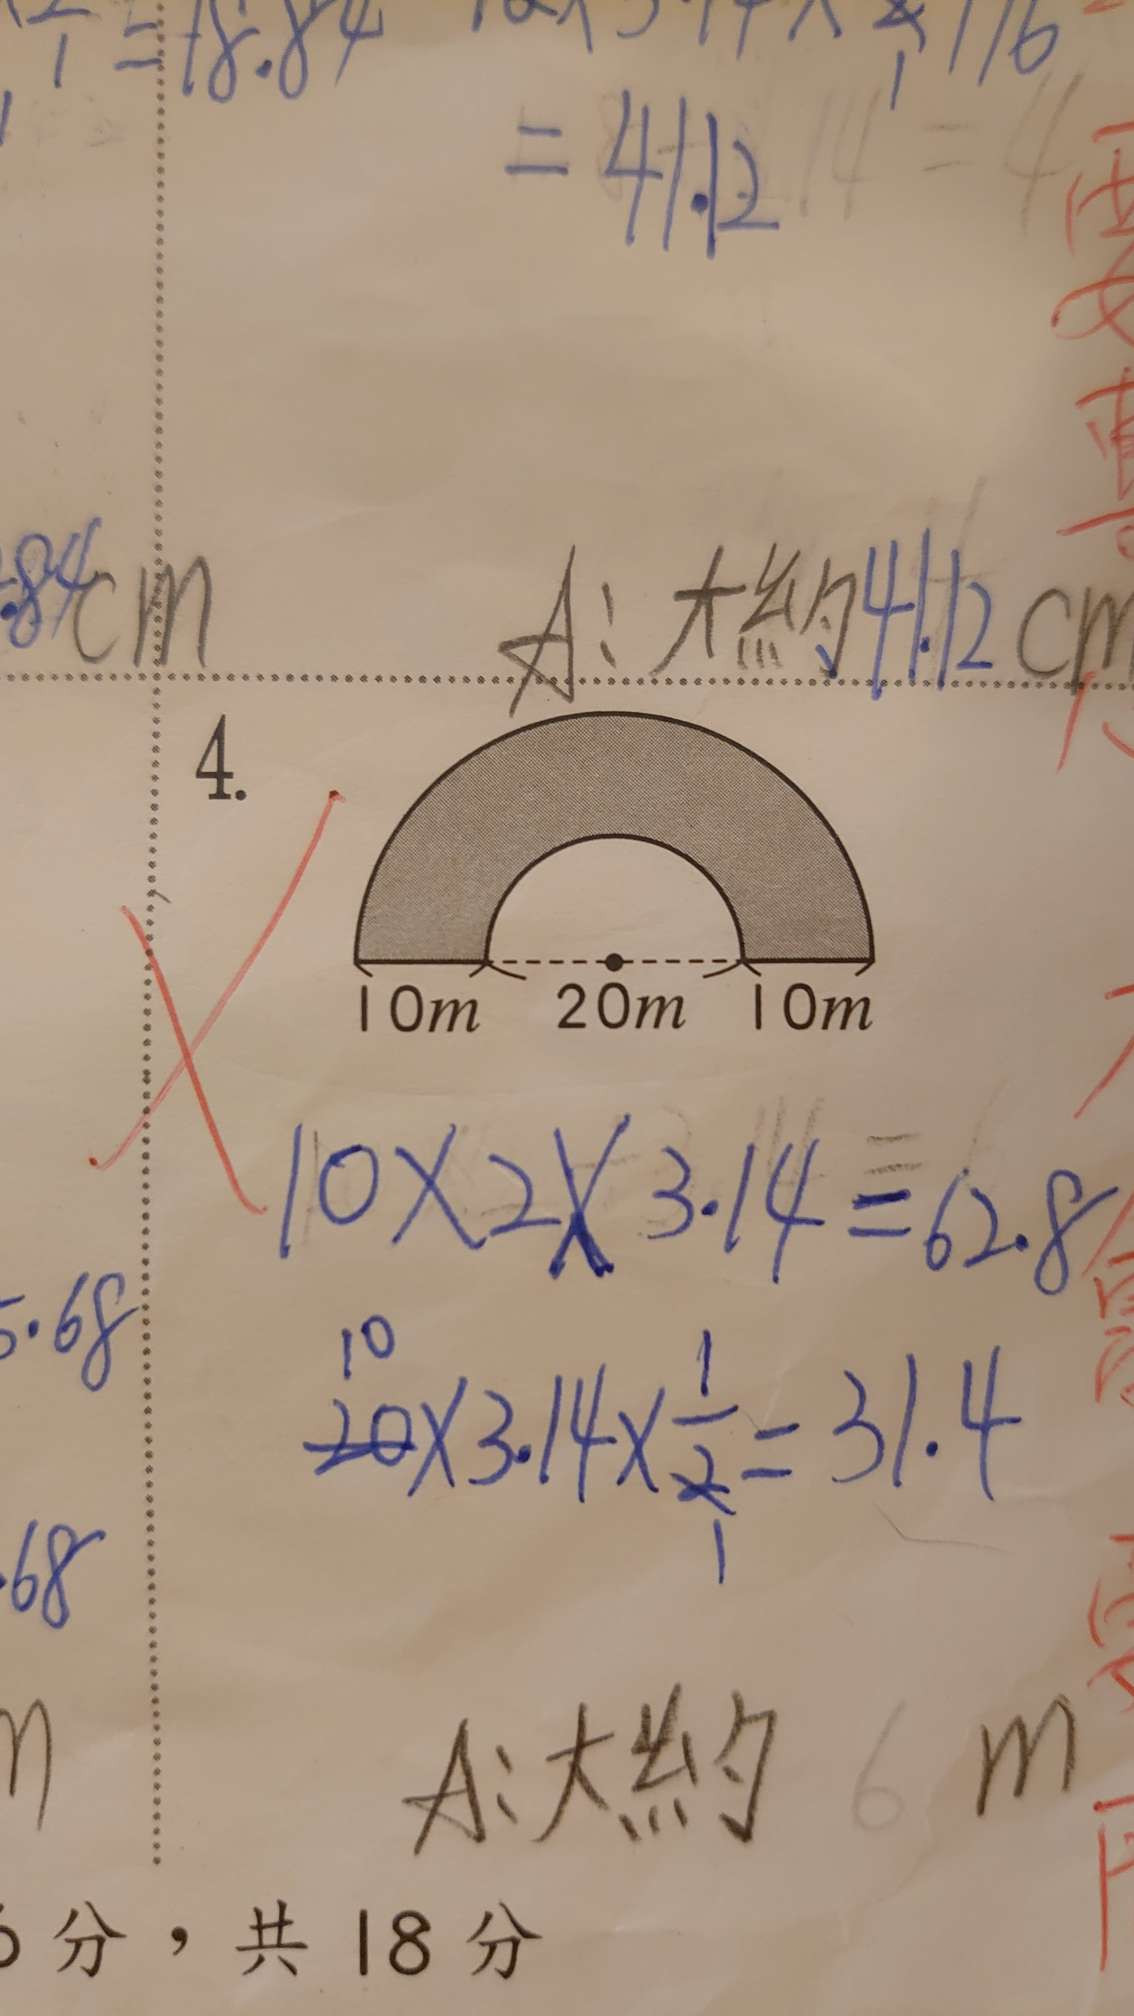 = 18.84
= 41.12
.84cm
A: 大約41.12cm
4.
10m 20m 10m
10×2×3.14=62.8
5.68
10
20×3.14×1/2=31.4
1
.68
A:大約 6 m
分，共 18 分